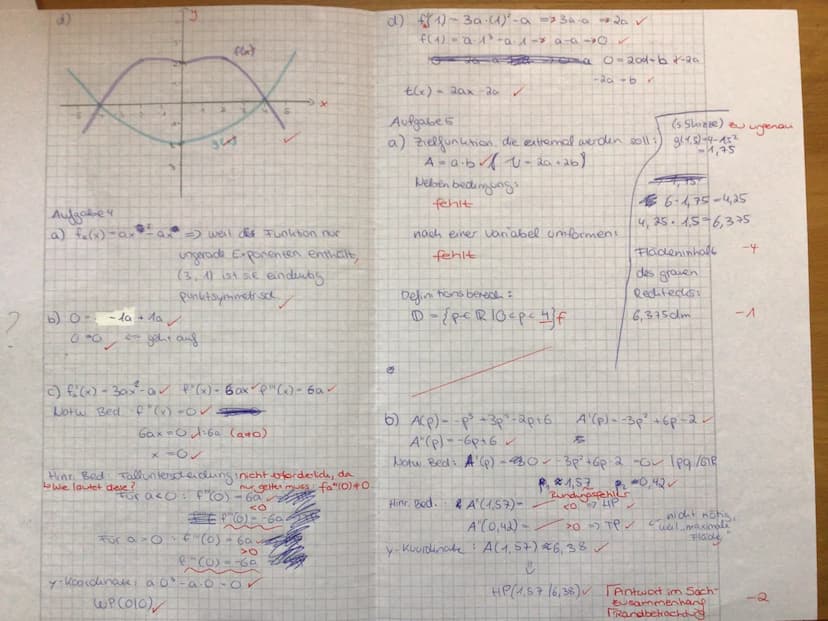 d)
y
f(x)
x
g(x)
Aufgabe 4
a) fₐ(x) = ax³ - ax => weil die Funktion nur
ungerade Exponenten enthält,
(3, 1) ist sie eindeutig
punktsymmetrisch ✓
?
b) 0 = -1a + 1a ✓
0=0 ✓ <= geht auf
c) fₐ'(x) = 3ax² - a ✓ f''(x) = 6ax ✓ f'''(x) = 6a ✓
Notw. Bed. f''(x) = 0 ✓
6ax = 0 |:6a (a≠0)
x = 0 ✓
Hinr. Bed. Fallunterscheidung nicht erforderlich, da
↳ Wie lautet diese? nur gelten muss: fa'''(0) ≠ 0
Für a<0: f'''(0) = 6a
<0
f'''(0) = -6a
Für a>0: f'''(0) = 6a
>0
f'''(0) = -6a
y-Koordinate: a·0³ - a·0 = 0 ✓
WP(0|0) ✓
d) f'(1) = 3a·(1)² - a => 3a-a => 2a ✓
f(1) = a·1³ - a·1 -> a-a -> 0 ✓
0 = 2a·1 + b |-2a
-2a = b ✓
t(x) = 2ax - 2a ✓
Aufgabe 5
a) Zielfunktion, die extremal werden soll:
A = a·b ✓ { U = 2a+2b }
Nebenbedingung:
fehlt
nach einer Variabel umformen:
fehlt
Definitionsbereich:
𝔻 = {p ∈ ℝ | 0 < p < 4} f
(s. Skizze) zu ungenau
g(1,5) = 4 - 1,5²
= 1,75
6 - 1,75 = 4,25
4,25 · 1,5 = 6,375
Flächeninhalt -4
des grauen
Rechtecks:
6,375dm -1
b) A(p) = -p³ + 3p² - 2p + 6 A'(p) = -3p² + 6p - 2 ✓
A''(p) = -6p + 6 ✓
Notw. Bed.: A'(p) = 0 ✓ -3p² + 6p - 2 = 0 ✓ |pq/GTR
p₁ ≈ 1,57 p₂ ≈ 0,42 ✓
Rundungsfehler
Hinr. Bed. A''(1,57) = <0 => HP ✓
A''(0,42) = >0 => TP ✓ nicht nötig,
weil "maximale
Fläche"
y-Koordinate: A(1,57) ≈ 6,38 ✓
⇓
HP(1,57 / 6,38) ✓ Γ Antwort im Sach-
zusammenhang -2
Γ Randbetrachtung